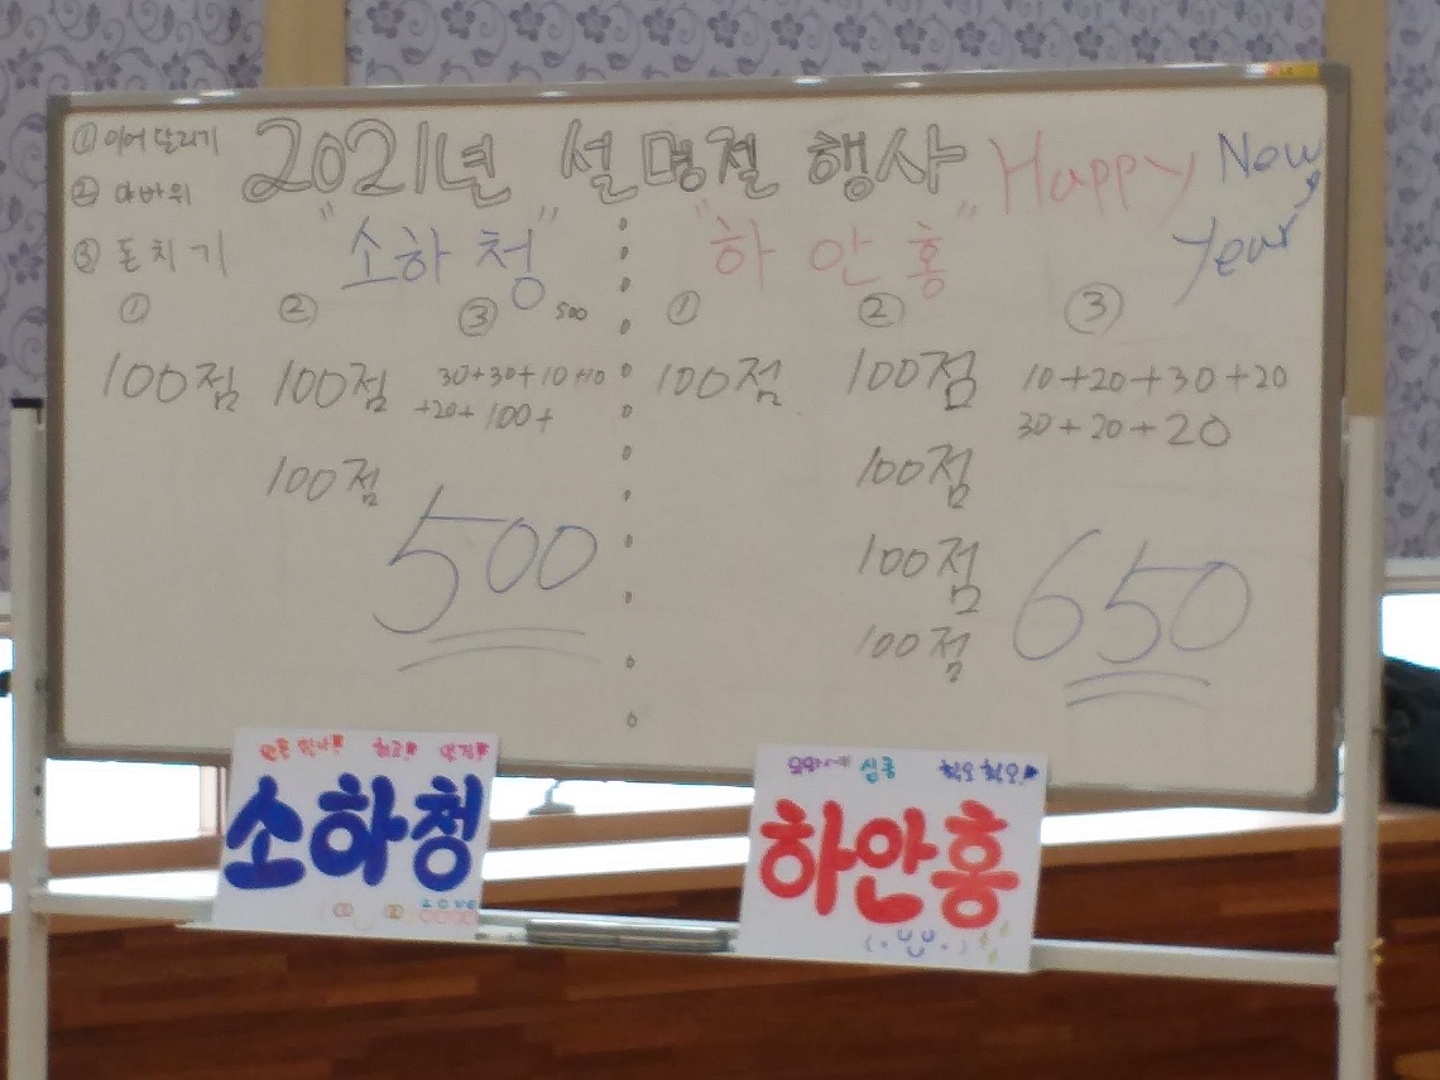 ① 이어 달리기
② 야바위
③ 돈치기
2021년 설명절 행사
Happy New Year
"소하청"
① ② ③ 500
100점 100점 30+30+10+10
+20+100+
100점
500
"하안홍"
① ② ③
100점 100점 10+20+30+20
30+20+20
100점
100점
100점
650
최고!
소하청
LOVE
하안홍